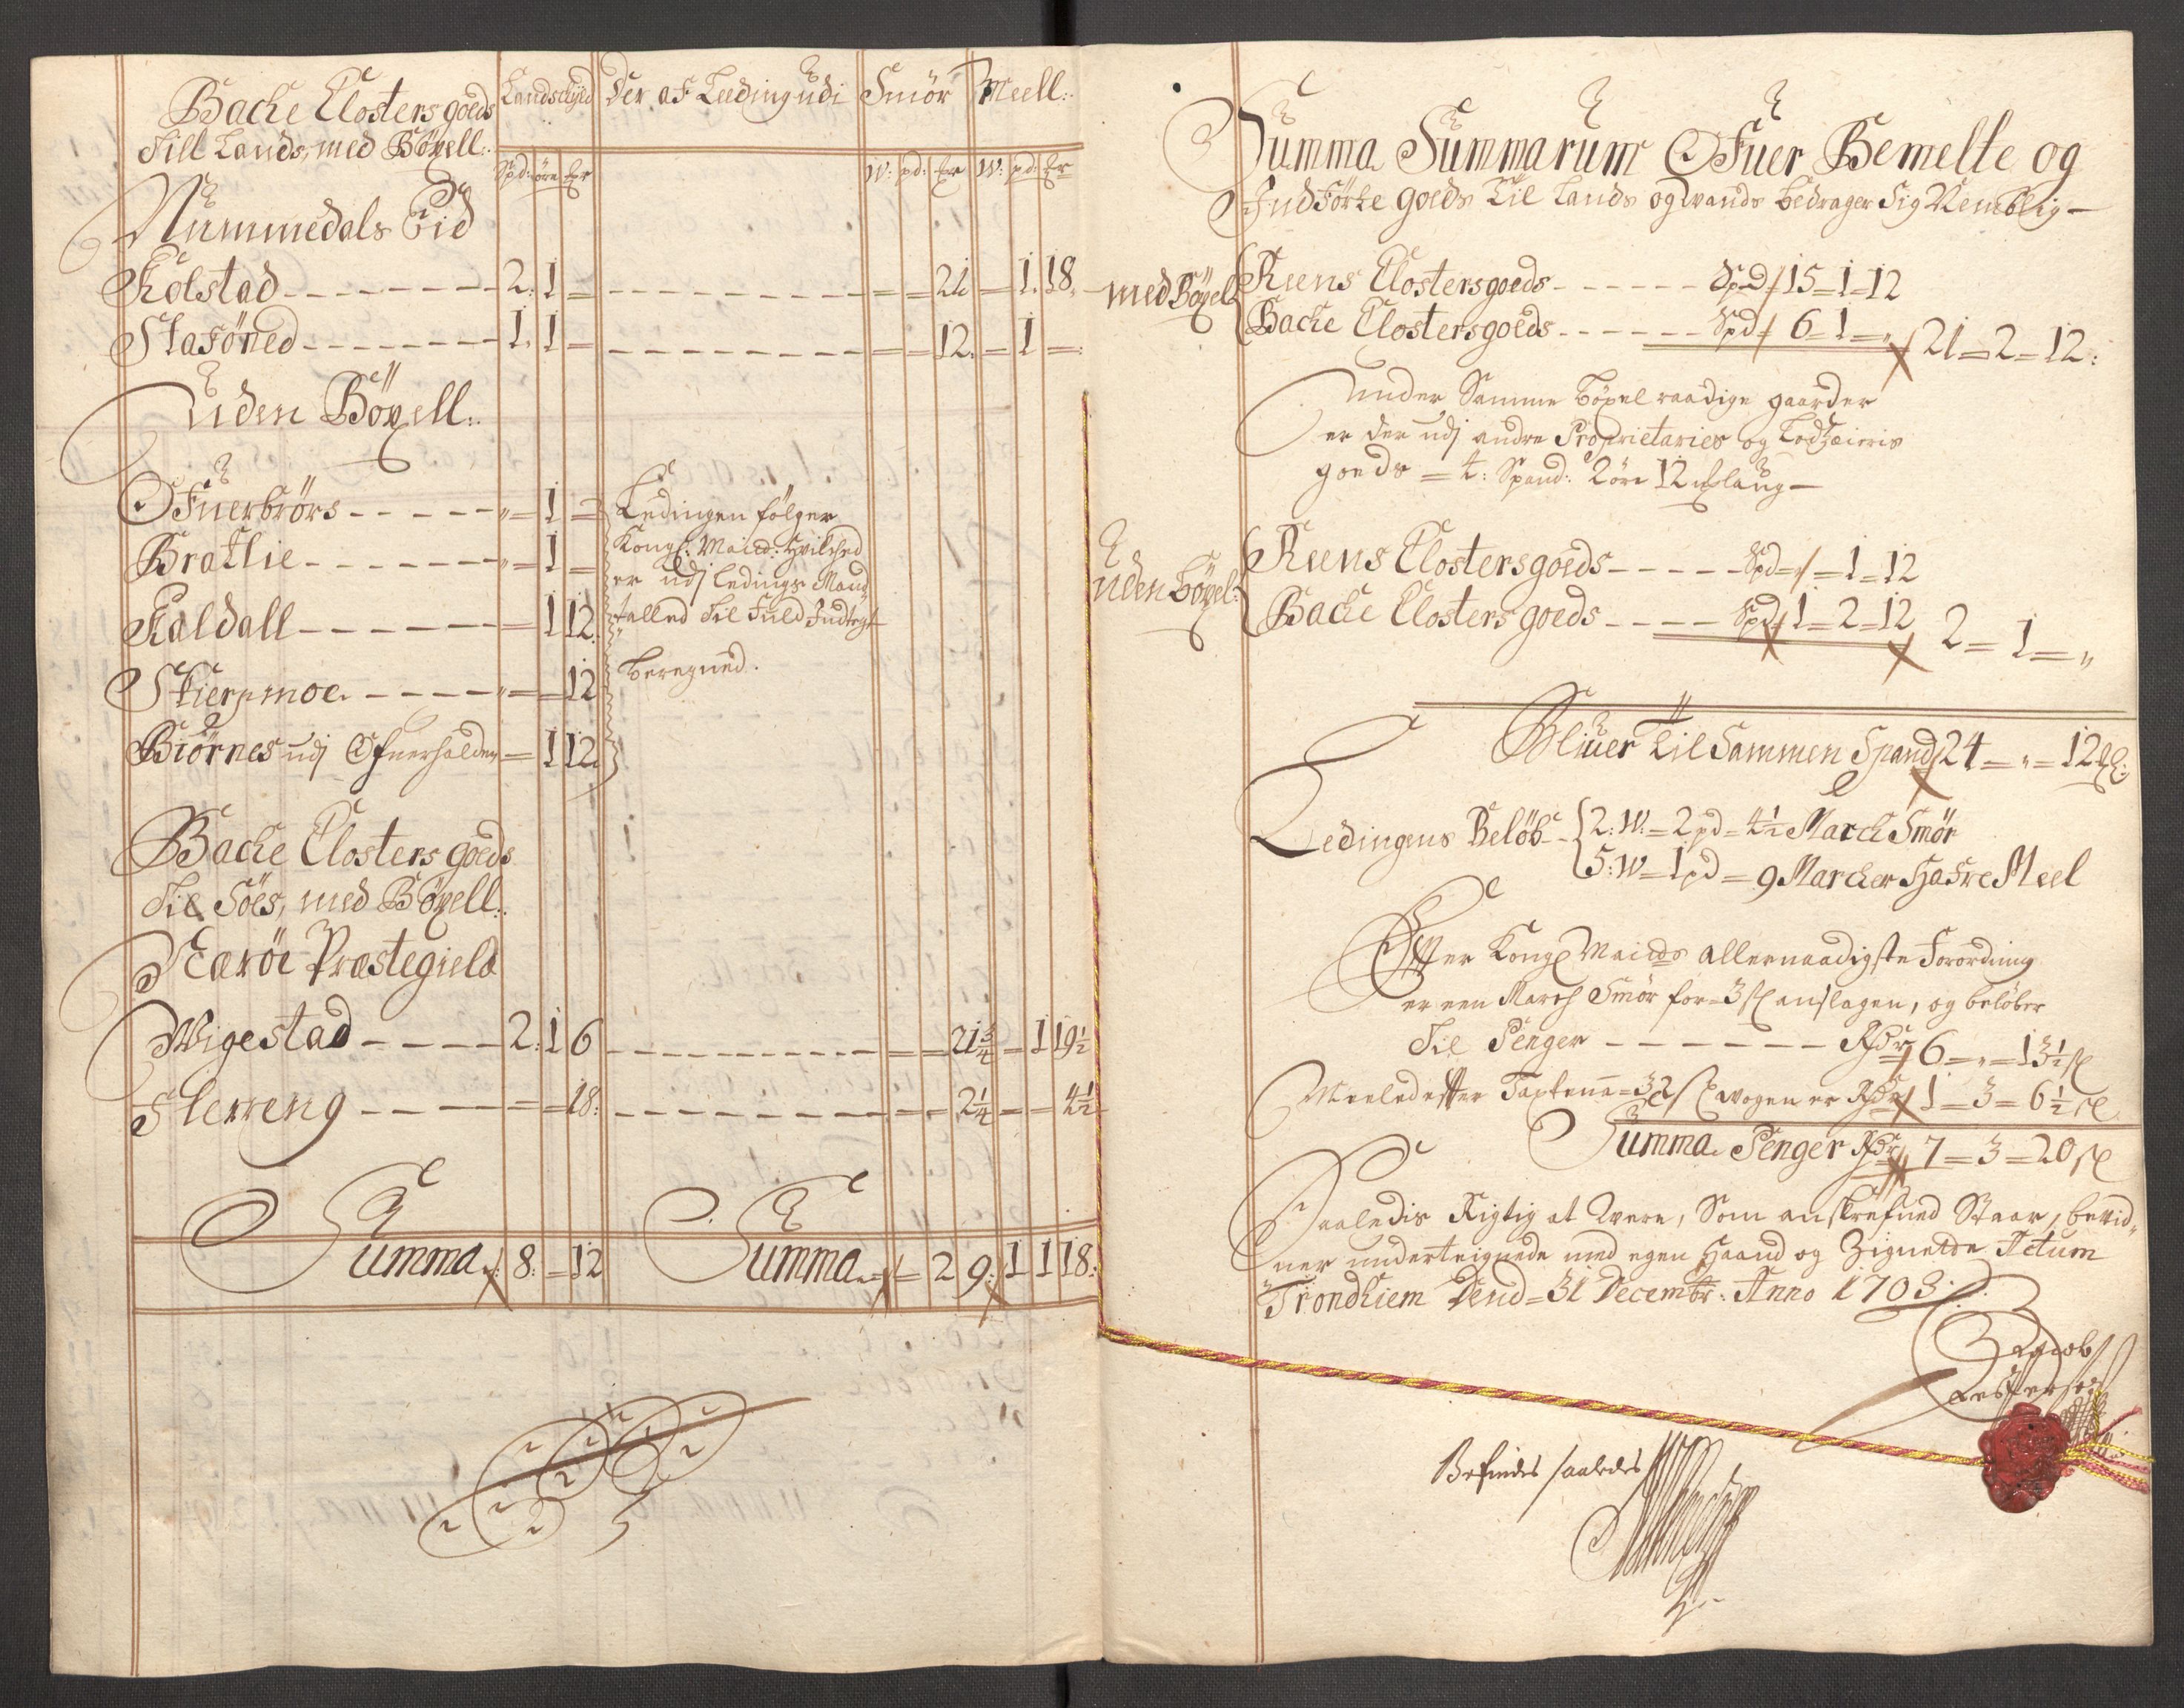 Bache Closters goeds
Till Lands, med Böxell:
Landschyld
Der af Leeding udi
Smör
Meell:
Spd: öre
W: pd:
W: pd:
Nummedals Eid
Kolstad 2: 1 = = = 21 = 1 18
Stasöned 1: 1 = = = 12 = 1 =
uden Böxell:
Ofuerbrörs " = 1 =
Bratlie " = 1 =
Kaldall = 1 12
Skierpmoe " = = 12
Biörnes udj Ofuerhalden = 1 12
Ledingen fölger
Kongl: Maied: Hvilched
er udj ledings Mand
talled Til Fuld Indtegt
beregned.
Bache Closters goeds
Til Söes, med Böxell:
Næröe Præstegield
Wigestad 2: 1 6 = = 21 3/4 = 1 19 1/2
Sterreng = = 18: = = 2 1/4 = = 4 1/2
Summa 8: = 12
Summa = 2 9: 1 1 18:
Summa Summarum Ofuer Bemelte og
Indförte goeds Til Lands og vands bedrager Sig Nemblig
med Böxel
Reens Clostersgoeds Spd 15 = 1 = 12
Bache Clostersgoeds Spd 6 = 1 = " 21 = 2 = 12:
under Samme böxel raadige gaarder
er der udj andre Proprietaries og
goeds = 4: Spand: 2 öre 12
uden böxel:
Reens Clostersgoeds Spd = " = 1 = 12
Bache Closters goeds Spd 1 = 2 = 12 2 = 1 = "
Bliuer Til Sammen Spand 24 = " = 12
Ledingens Belöb 2: W: = 2 pd = 4 1/2 March Smör
5: W = 1 pd = 9 Marcher Hafre Meel
Efter Kongl Maieds allernaadigste Forordning
er een March Smör for = 3 sl anslagen, og belöber
Til Penger Rdr 6 = " = 13 1/2 sl
Meeled efter Taxten = 32 sl wogen er Rdr 1 = 3 = 6 1/2 sl
Summa Penger Rdr 7 = 3 = 20 sl
Saaledis Rigtig at were, Som anskrefued Staar, bevid¬
ner underteignede med egen Haand og Zignette Actum
Trondhiem Dend = 31 Decembr: Anno 1703
Jacob
Befindes saaledes